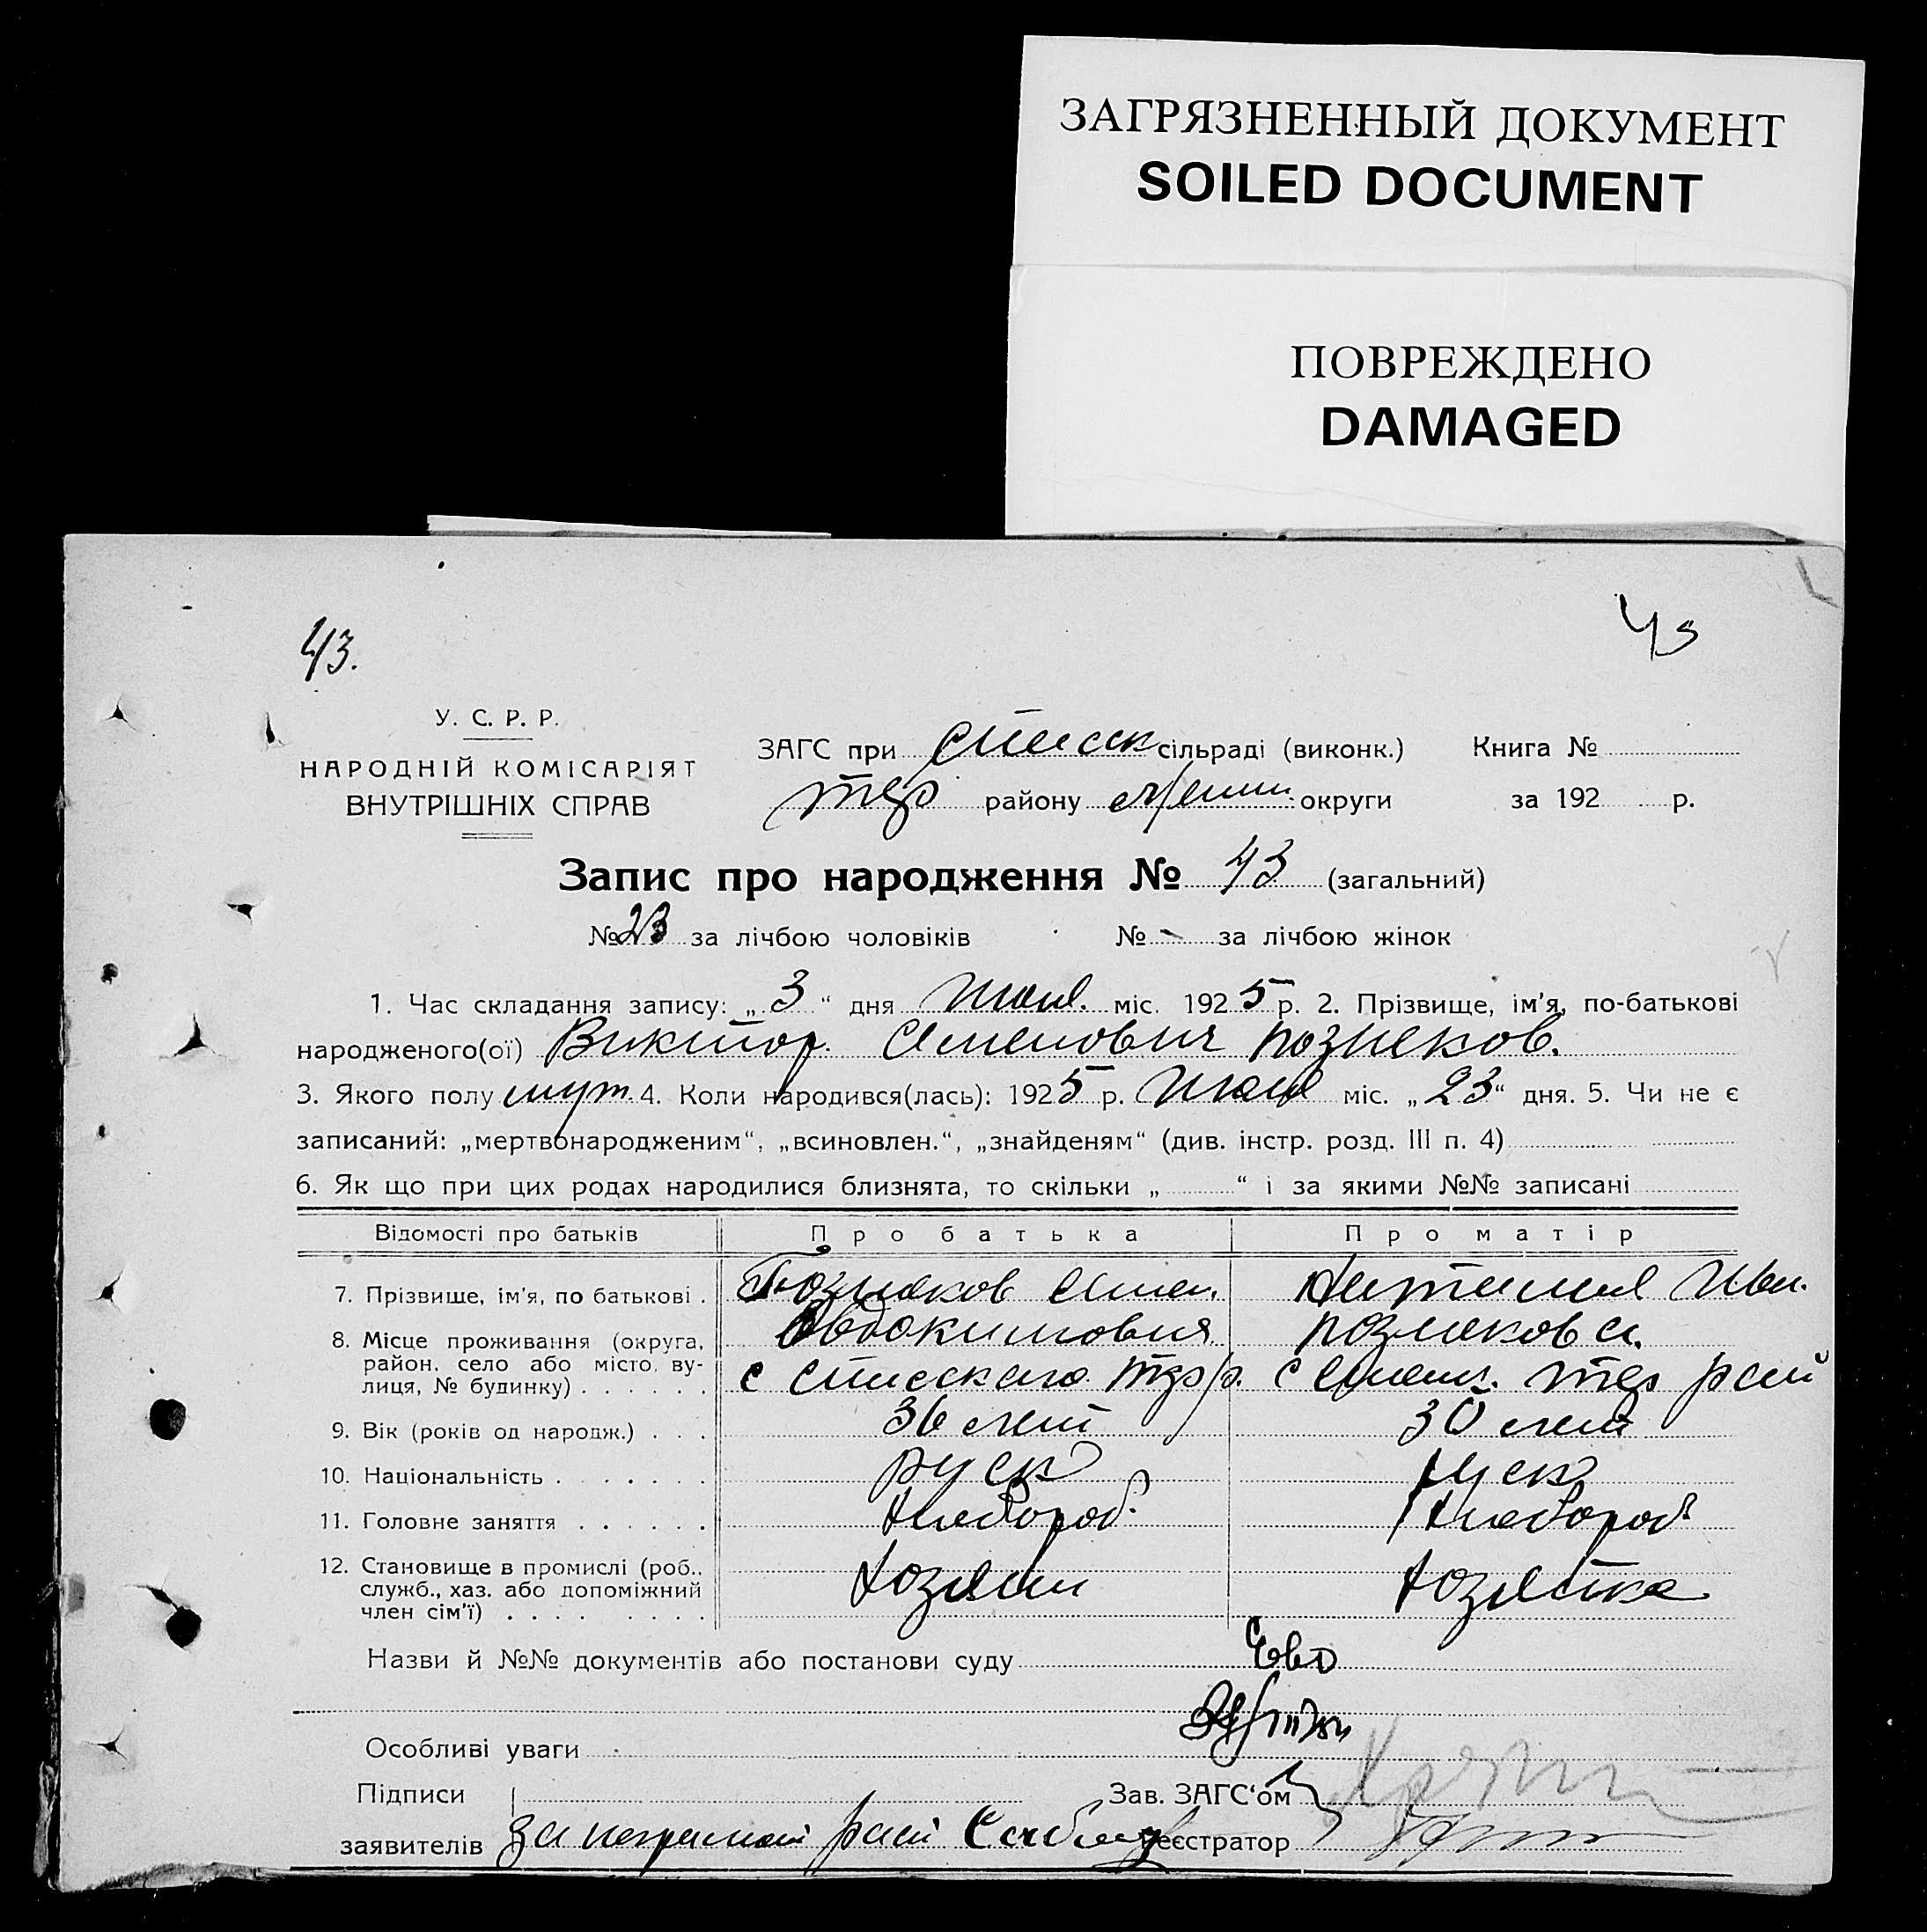 ЗАГРЯЗНЕННЫЙ ДОКУМЕНТ
SOILED DOCUMENT
ПОВРЕЖДЕНО
DAMAGED
43.
43
У. С. Р. Р.
НАРОДНІЙ КОМІСАРІЯТ
ВНУТРІШНІХ СПРАВ
ЗАГС при сільраді (виконк.) Книга №
району округи за 192 р.
Запис про народження № 43 (загальний)
№ 23 за лічбою чоловіків № - за лічбою жінок
1. Час складання запису: „ 3 “ дня міс. 192 5 р. 2. Прізвище, ім'я, по-батькові
народженого(ої) Виктор Семенович Позняков.
3. Якого полу муж. 4. Коли народився(лась): 192 5 р. міс. „ 23 “ дня. 5. Чи не є
записаний: „мертвонародженим“, „всиновлен.“, „знайденям“ (див. інстр. розд. III п. 4)
6. Як що при цих родах народилися близнята, то скільки „ “ і за якими №№ записані
Відомості про батьків Про батька Про матір
7. Прізвище, ім'я, по батькові . Позняков Семен. Ив.
8. Місце проживання (округа, Познякова.
район, село або місто, ву-
лиця, № будинку) . . . . . . с с рай
9. Вік (років од народж.) . . . 36 лет 30 лет
10. Національність . . . . . . . руск руск
11. Головне заняття . . . . . . Хлебороб. Хлебороб
12. Становище в промислі (роб.,
служб., хаз. або допоміжний Хозяин Хозяйка
член сім'ї) . . . . . . . .
Назви й №№ документів або постанови суду
Особливі уваги
Підписи Зав. ЗАГС'ом
заявителів за Реєстратор